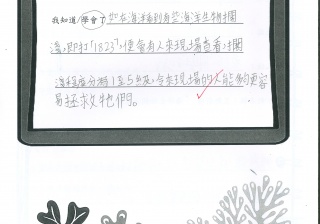 我知道/學會了 如在海洋看到有些海洋生物擱
淺,即打「1823」,便會有人來現場查看,擱
淺程度分為1至5級,令來現場的人能夠更容
易拯救牠們。